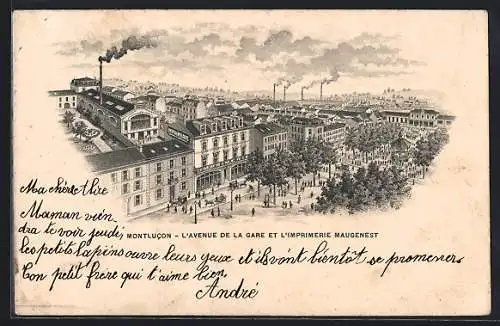 Ma chère
Maman vien
dra te voir jeudi
MONTLUÇON - L'AVENUE DE LA GARE ET L'IMPRIMERIE MAUGENEST
les petits lapins ouvre leurs yeux et ils vont bientôt se promener
Ton petit frère qui t'aime bien
André